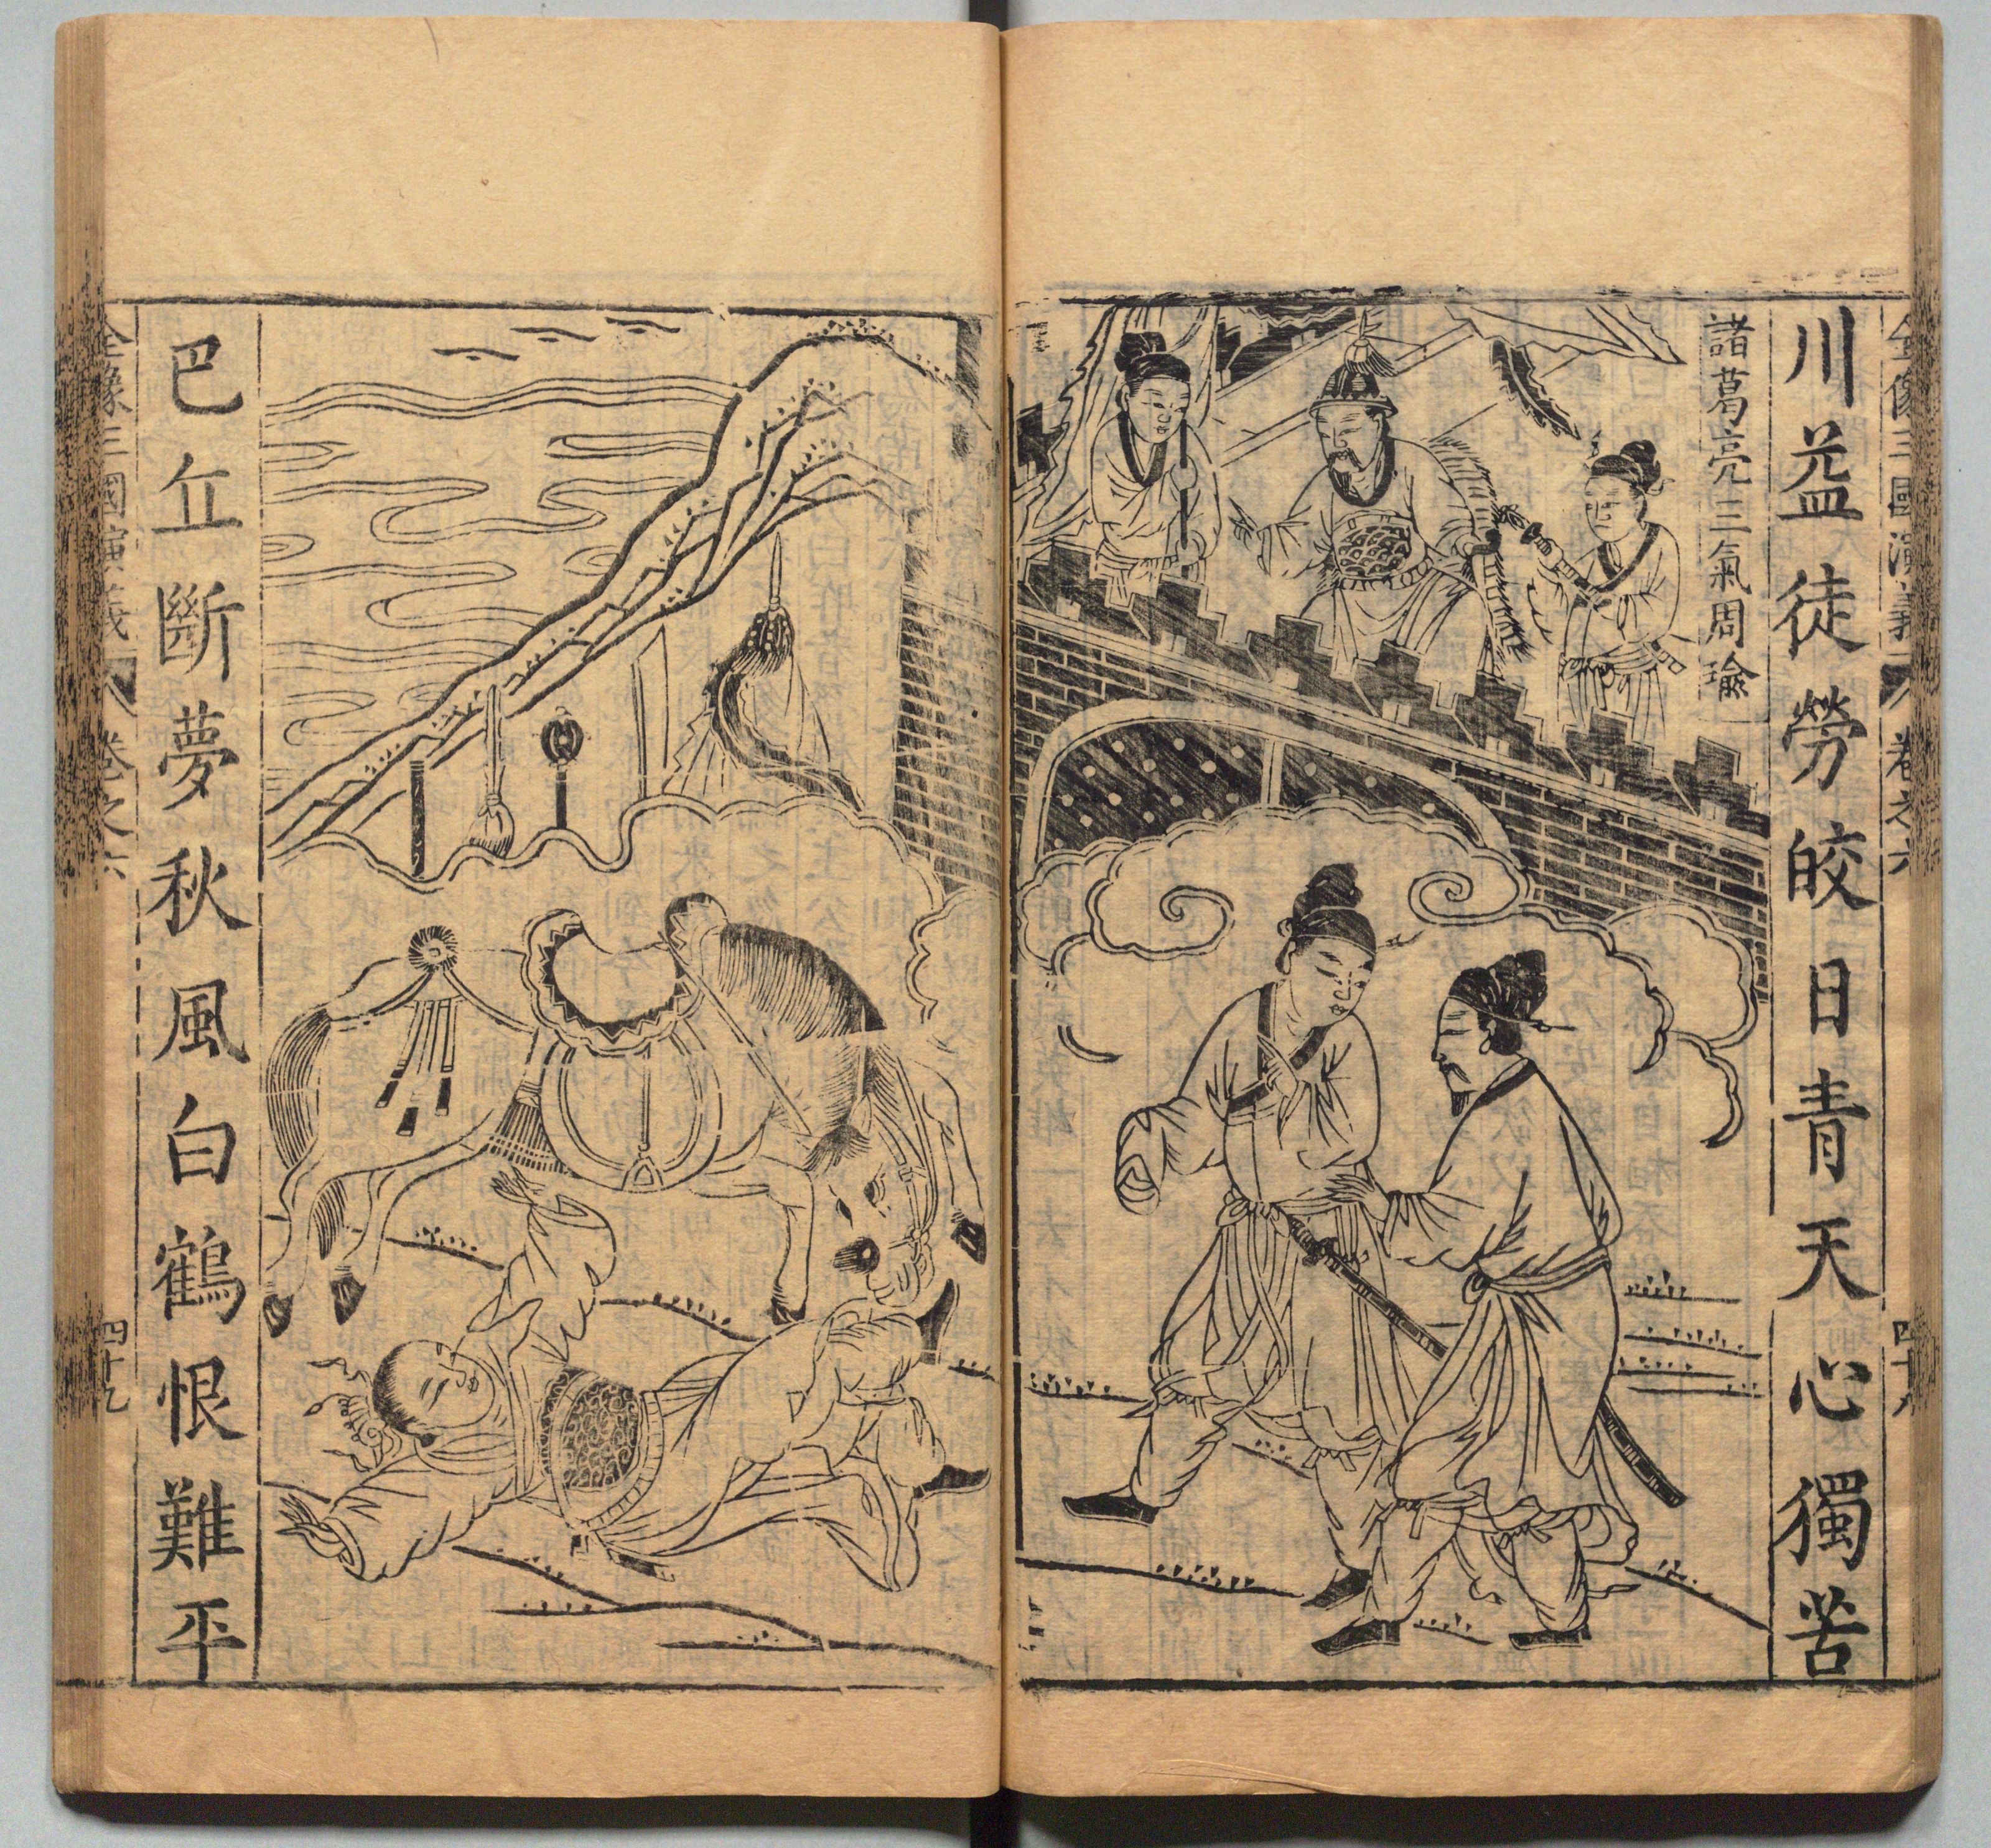 全像三國演義
卷之六
四十八
川益徒勞皎日青天心獨苦
諸葛亮三氣周瑜
巴丘斷夢秋風白鶴恨難平
全像三國演義
卷之六
四十九